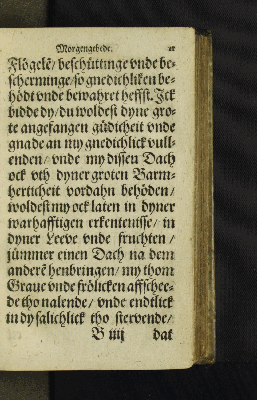 Morgengebede.
Flögelē / beschüttinge vnde be-
scherminge / so gnedichliken be-
hödt vnde bewahret heffst. Ick
bidde dy / du woldest dyne gro-
te angefangen güdicheit vnde
gnade an my gnedichlick vull-
enden / vnde my dissen Dach
ock vth dyner groten Barm-
herticheit vordahn behöden /
woldest my ock laten in dyner
warhafftigen erkentenisse / in
dyner Leeve vnde fruchten /
jümmer einen Dach na dem
anderē henbringen / my thom
Graue vnde frölicken affschee-
de tho nalende / vnde endtlick
in dy salichlick tho stervende /
B iiij dat